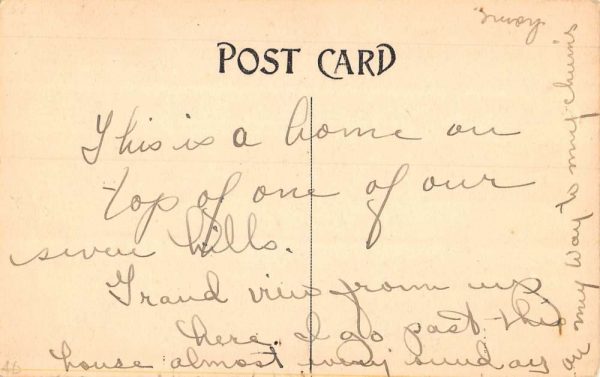 POST CARD
This is a home on
top of one of our
seven hills.
Grand view from up
here. I go past this
house almost every sunday
on my way to my chum's
home
46